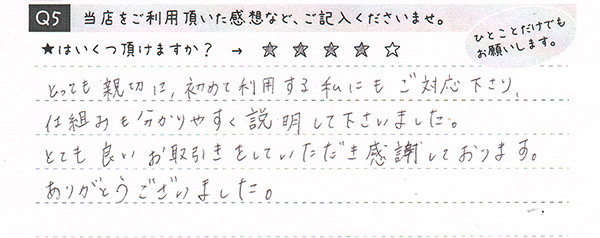 Q5 当店をご利用頂いた感想など、ご記入くださいませ。
★はいくつ頂けますか？ → ★★★★☆
ひとことだけでも
お願いします。
とっても親切に、初めて利用する私にもご対応下さり、
仕組みも分かりやすく説明して下さいました。
とても良いお取引きをしていただき感謝しております。
ありがとうございました。